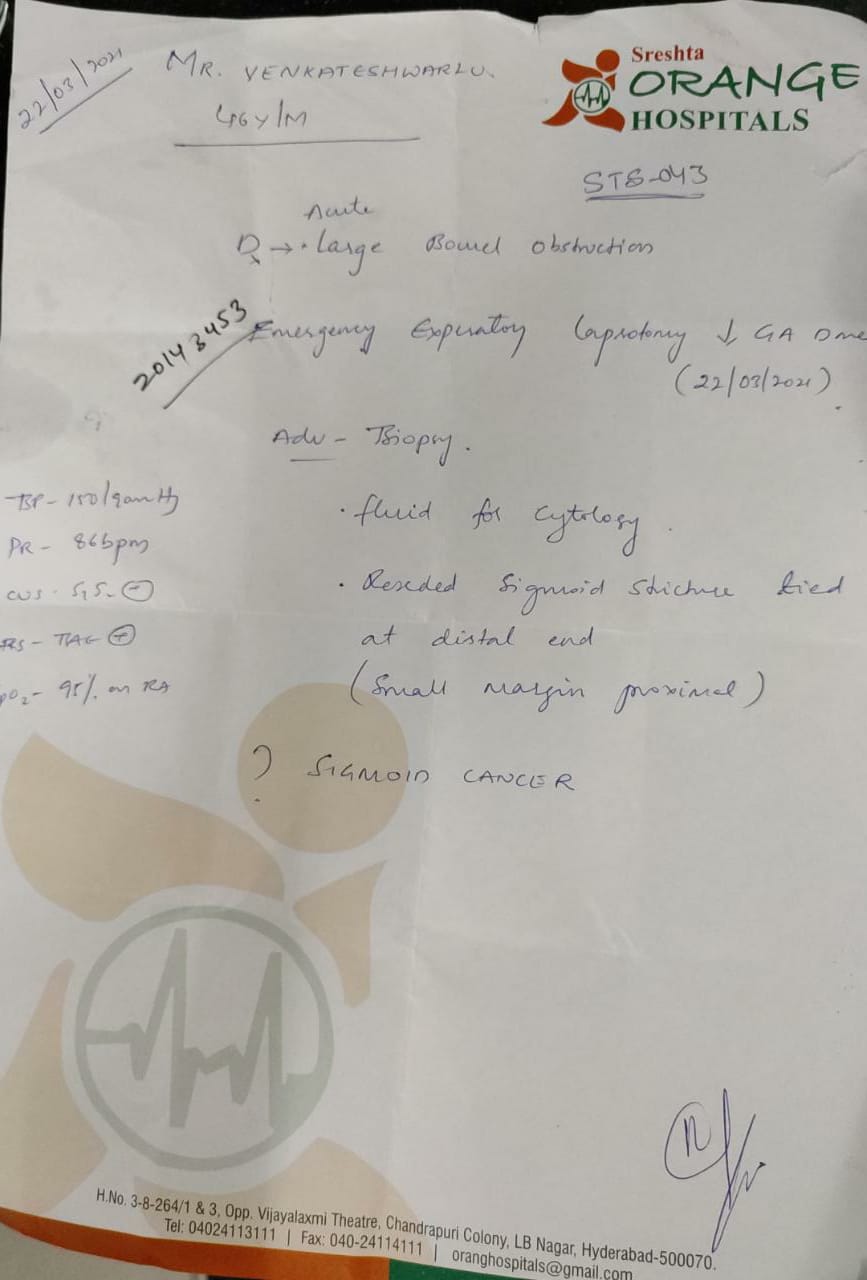 22/03/2021
MR. VENKATESHWARLU.
46y/M
Sreshta
ORANGE
HOSPITALS
STS-043
Acute
Dx → · Large Bowel obstruction
20143453
Emergency Expuratory laprotomy ↓ GA Done
(22/03/2021)
Adv - Biopsy.
BP - 150/90mmHg
· fluid for cytology.
PR - 86bpm
CVS - S1S2 ⊕
· Reseded Sigmoid stricture tied
RS - BAE ⊕
at distal end
pO2 - 95% on RA
(Small margin proximal)
? SIGMOID CANCER
H.No. 3-8-264/1 & 3, Opp. Vijayalaxmi Theatre, Chandrapuri Colony, LB Nagar, Hyderabad-500070.
Tel: 04024113111 | Fax: 040-24114111 | oranghospitals@gmail.com